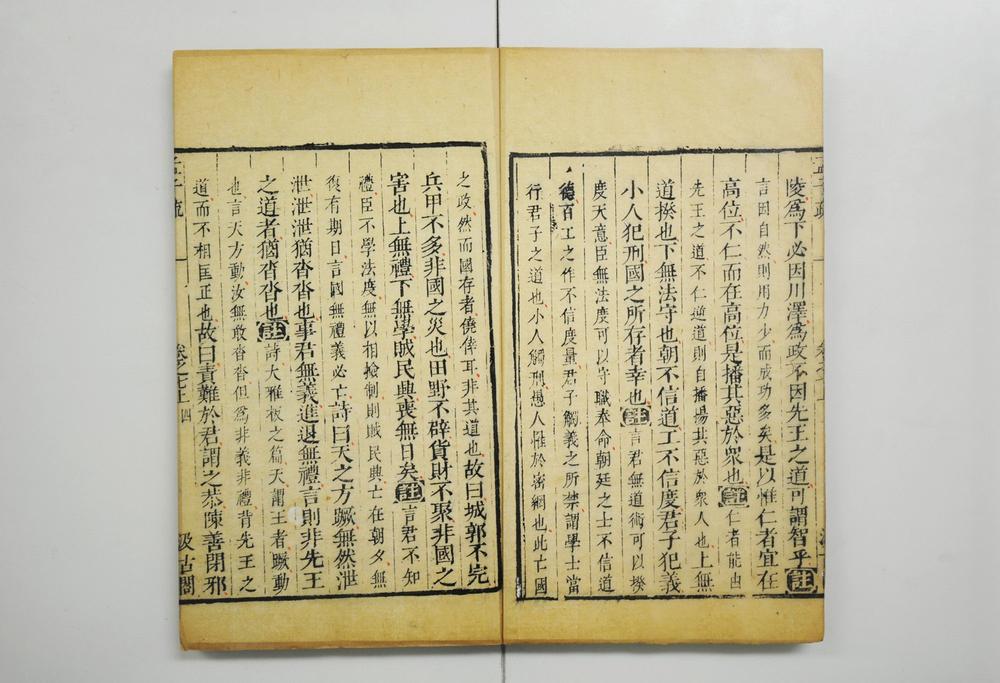 陵為下必因川澤為政不因先王之道可謂智乎註
言因自然則用力少而成功多矣是以惟仁者宜在
高位不仁而在高位是播其惡於衆也註仁者能由
先王之道不仁逆道則自播揚其惡於衆人也上無
道揆也下無法守也朝不信道工不信度君子犯義
小人犯刑國之所存者幸也註言君無道術可以揆
度天意臣無法度可以守職奉命朝廷之士不信道
德百工之作不信度量君子觸義之所禁謂學士當
行君子之道也小人觸刑愚人罹於密網也此亡國
之政然而國存者僥倖耳非其道也故曰城郭不完
兵甲不多非國之災也田野不辟貨財不聚非國之
害也上無禮下無學賊民興喪無日矣註言君不知
禮臣不學法度無以相檢制則賊民興亡在朝夕無
復有期日言國無禮義必亡詩曰天之方蹶無然泄
泄泄泄猶沓沓也事君無義進退無禮言則非先王
之道者猶沓沓也註詩大雅板之篇天謂王者蹶動
也言天方動汝無敢沓沓但為非義非禮背先王之
道而不相匡正也故曰責難於君謂之恭陳善閉邪
孟子疏 卷之七上 四 汲古閣